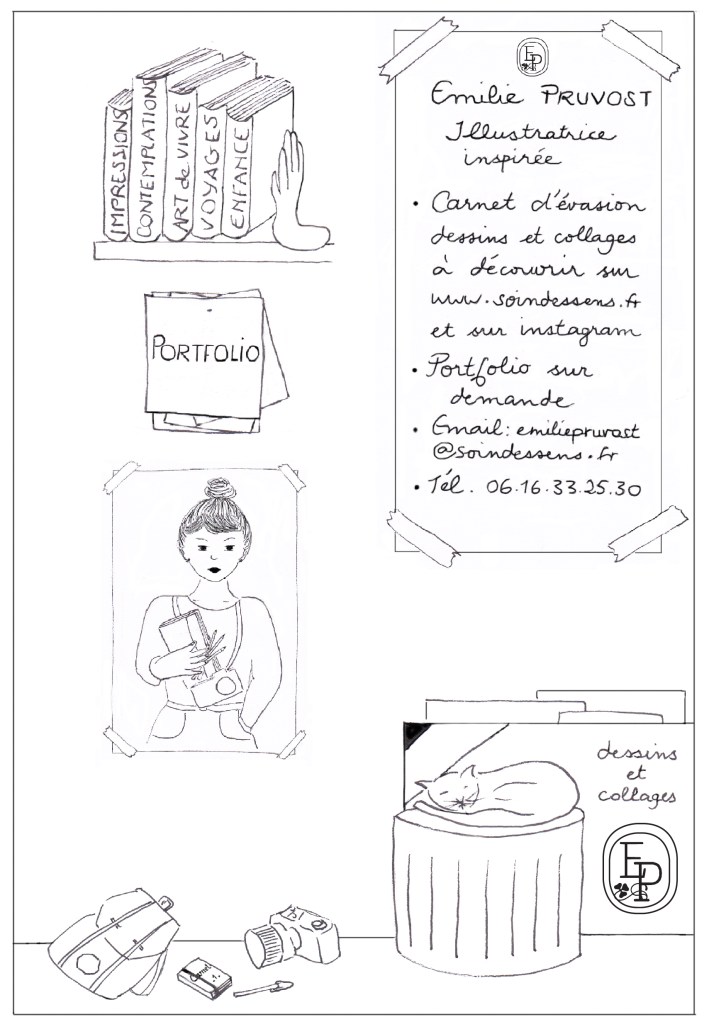 IMPRESSIONS
CONTEMPLATIONS
ART de VIVRE
VOYAGES
ENFANCE
PORTFOLIO
EP
Emilie PRUVOST
Illustratrice
inspirée
• Carnet d'évasion
dessins et collages
à découvrir sur
www.soindessens.fr
et sur instagram
• Portfolio sur
demande
• Email: emiliepruvost
@soindessens.fr
• Tél. 06.16.33.25.30
dessins
et
collages
EP